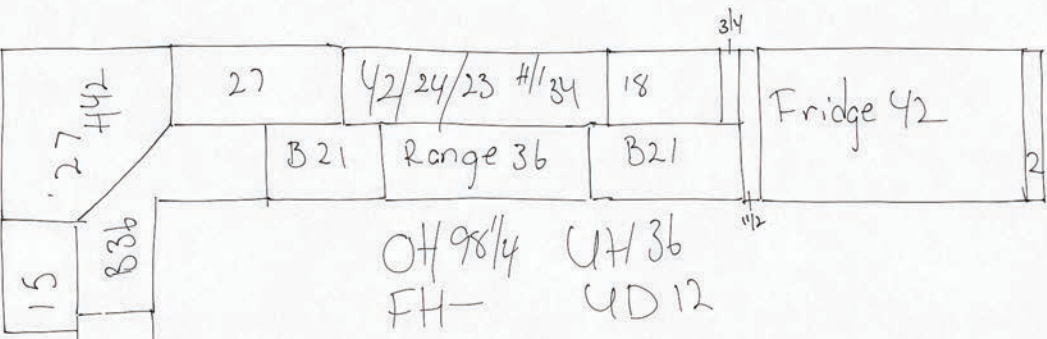 3/4
27 H42
27
42/24/23 H/134
18
Fridge 42
2
B21
Range 36
B21
1 1/2
B36
15
OH 98 1/4 UH 36
FH— UD 12